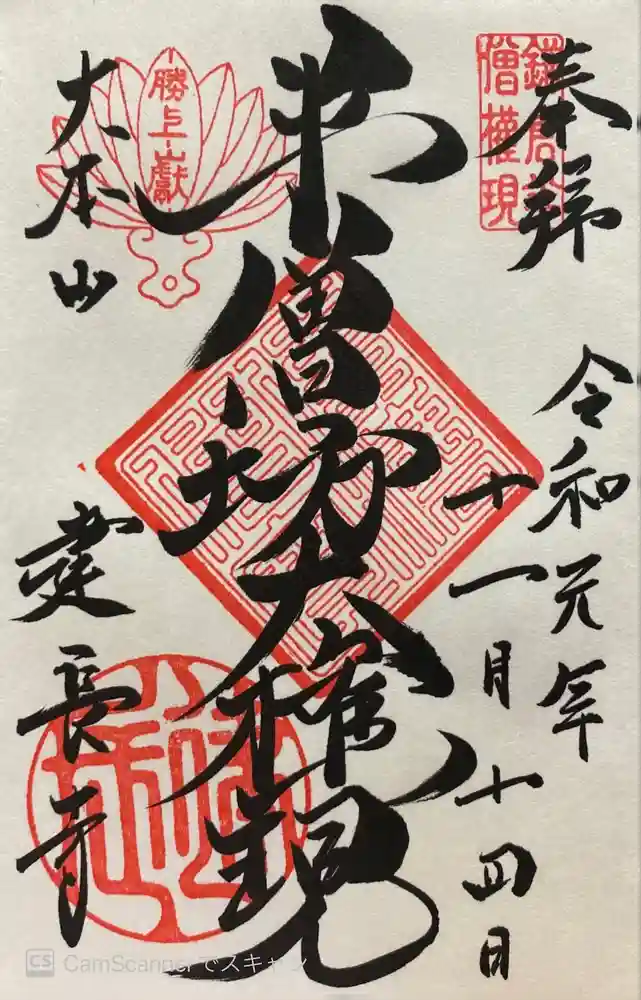 奉拝
令和元年
十一月十四日
半僧坊大権現
大本山
建長寺
勝上献
鎌倉半
僧権現
CS CamScannerでスキャン